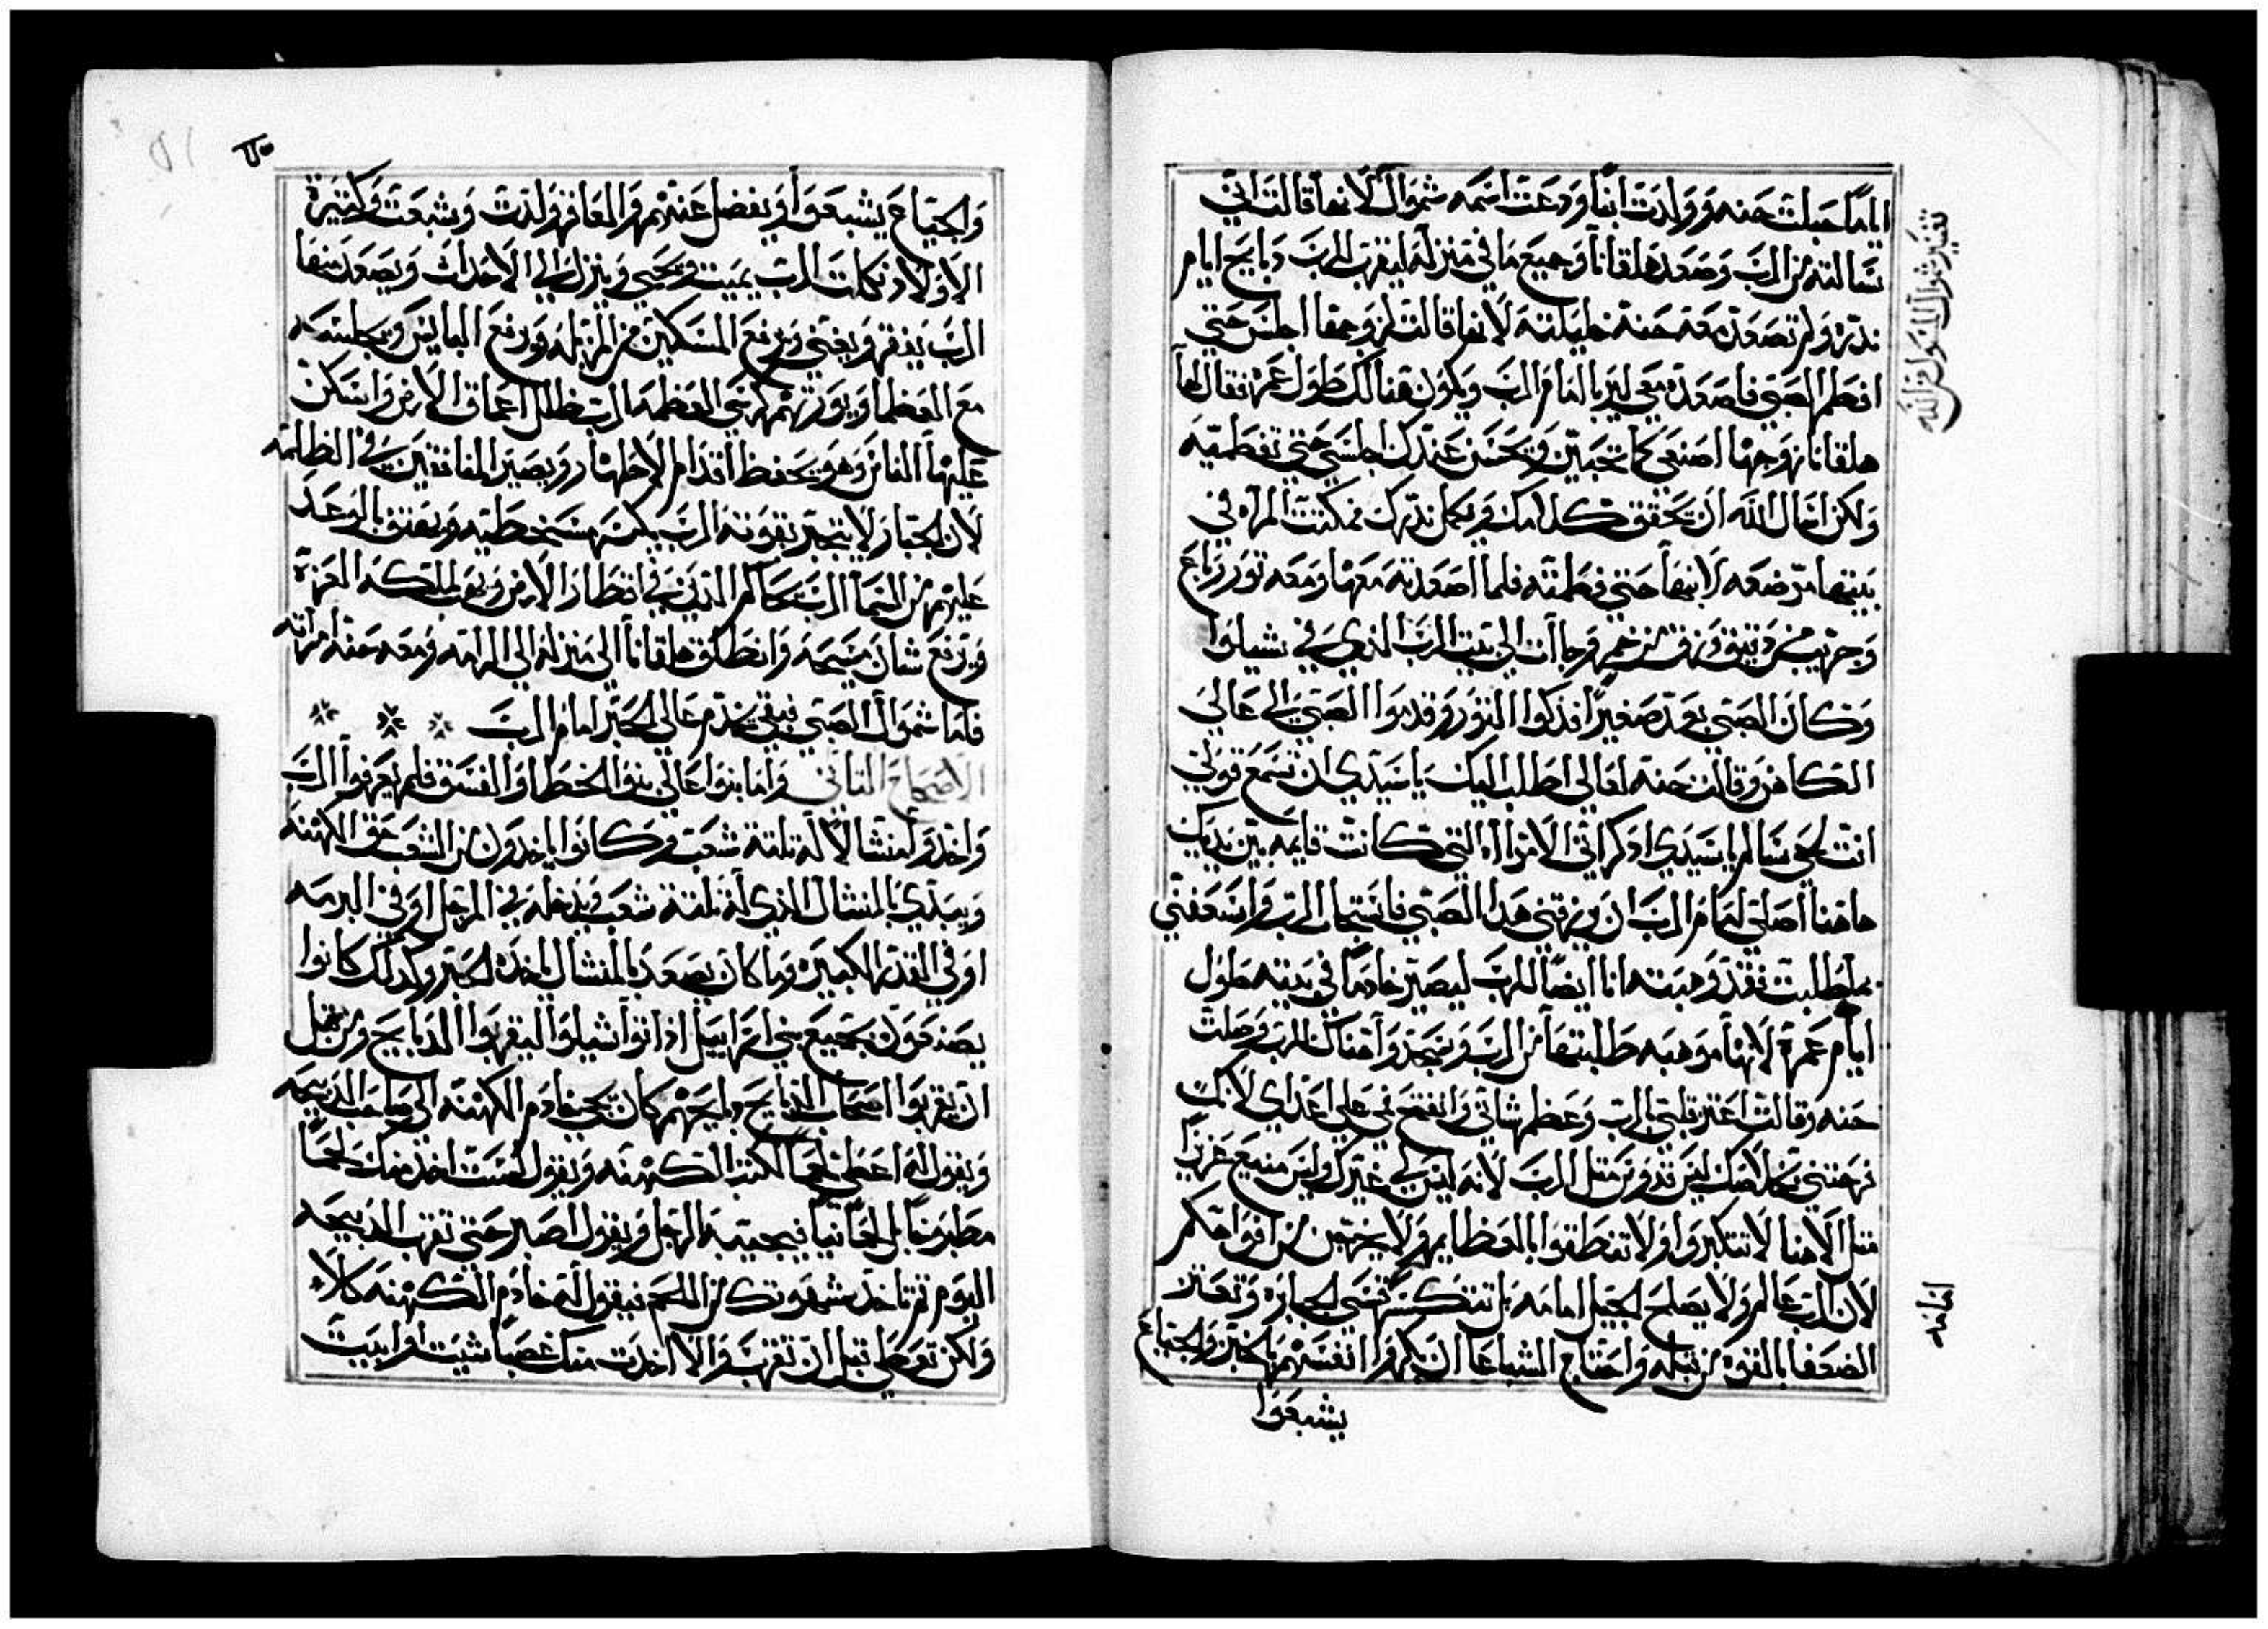 اياماً حبلت حنه وولدت ابناً ودعت اسمه شموال لانها قالت اني
سالته من الرب وصعد هلقانا وجميع ما في منزله ليقرب للرب دبايح ايام
ندره ولم تصعد معه حنة خليلته لانها قالت لزوجها اجلس حتي
افطم الصبي فاصعده معي ليريا امام الرب ويكون هنالك طول عمره فقال لها
هلقانا زوجها اصنعي كما تحبين ويحسن عندك اجلسي حتي تفطميه
ولكن اسال الله ان يحقق كلامك ويكمل ندرك فمكتت المراه في
بيتها مرضعه لابنها حتي فطمته فلما اصعدته معها ومعه تور رباع
وجريب دقيق وزق من خمر وجاات الي بيت الرب الذي في شيلوا
وكان الصبي بعد صغيراً فذكوا التور وقدموا الصبي الي عالي
الكاهن وقالت حنه لعالي اطلب اليك يا سيدي ان تسمع قولي
انت لحي سالم يا سيدي ادكر اني الامراه التي كانت قايمه بين يديك
هاهنا اصلي امام الرب ان يرزقني هدا الصبي فاستجاب الرب واسعفني
بما طلبت فقد وهبته انا ايضاً للرب ليصير خادماً في بيته طول
ايام عمره لانها موهبه طلبتها من الرب وسجدوا هناك للرب وصلت
حنه وقالت اعتز قلبي بالرب وعظم شاني وانفتح في علي اعداي لانك
فرحتني بخلاصك ليس قدوس متل الرب لانه ليس غيرك وليس منيع عزيزاً
متل الاهنا لا تتكبروا ولا تنطقوا بالعظايم ولا يخرجن من افواهكم
لان الرب عالم ولا يصلح الحيل امامه بل تنكسر قسي الجبابره وتعتز
الضعفا بالقوه من قبله واحتاج الشباعا ان يكروا انفسهم بالخبز والجياع
يشبعوا
والجياع يشبعوا ويفضل عنهم والعاقر ولدت وشبعت وكتيرة
الاولاد تكلت الرب يميت ويحيي وينزل الي الاحداث ويصعد منها
الرب يفقر ويغني ويرفع المسكين من المزبله ويرفع البايس ويجلسه
مع العظما ويورثهم كرسي العظمه الرب اعماق الارض واسكن
عليها الناس وهو يحفظ اقدام الاطهار ويصير المنافقين في الظلمه
لان الجبار لا يتجبر بقوته الرب يكسر مسخطيه ويصوت بالرعد
عليهم من السما الرب يحاكم الدين في اقطار الارض ويهب لملكه العزة
ويرفع شان مسيحه وانطلق هلقانا الي منزله الي الرامه ومعه حنه امراته
فاما شموال الصبي فبقي يخدم عالي الحبر امام الرب
الاصحاح التاني واما بنوا عالي بنوا الخطا والفسق فلم يعرفوا الرب
واخدوا منشالا له تلتة شعب وكانوا ياخدون من الشعب حق الكهنه
ويبتدي بالمنشال الذي له تلتة شعب ويدخله في المرجل او في البرمه
او في القدر الكبيره وما كان يصعد بالمنشال ياخده الحبر وكدلك كانوا
يصنعون بجميع بني اسراييل اذا اتوا شيلوا ليقربوا الدبايح ومن قبل
ان يقربوا اصحاب الدبايح دبايحهم كان يجي خادم الكهنه الي صاحب الدبيحه
ويقول له اعطني لحماً الكهنه ويقول لست اخد منك لحماً
مطبوخاً بل لحماً نياً فيجيبه الرجل ويقول اصبر حتي تقرب الدبيحه
اليوم تم تاخد شهوتك من اللحم فيقول له خادم الكهنه كلا
ولكن تعطي قبل ان تقرب والا اخدت منك غصباً شيت او ابيت